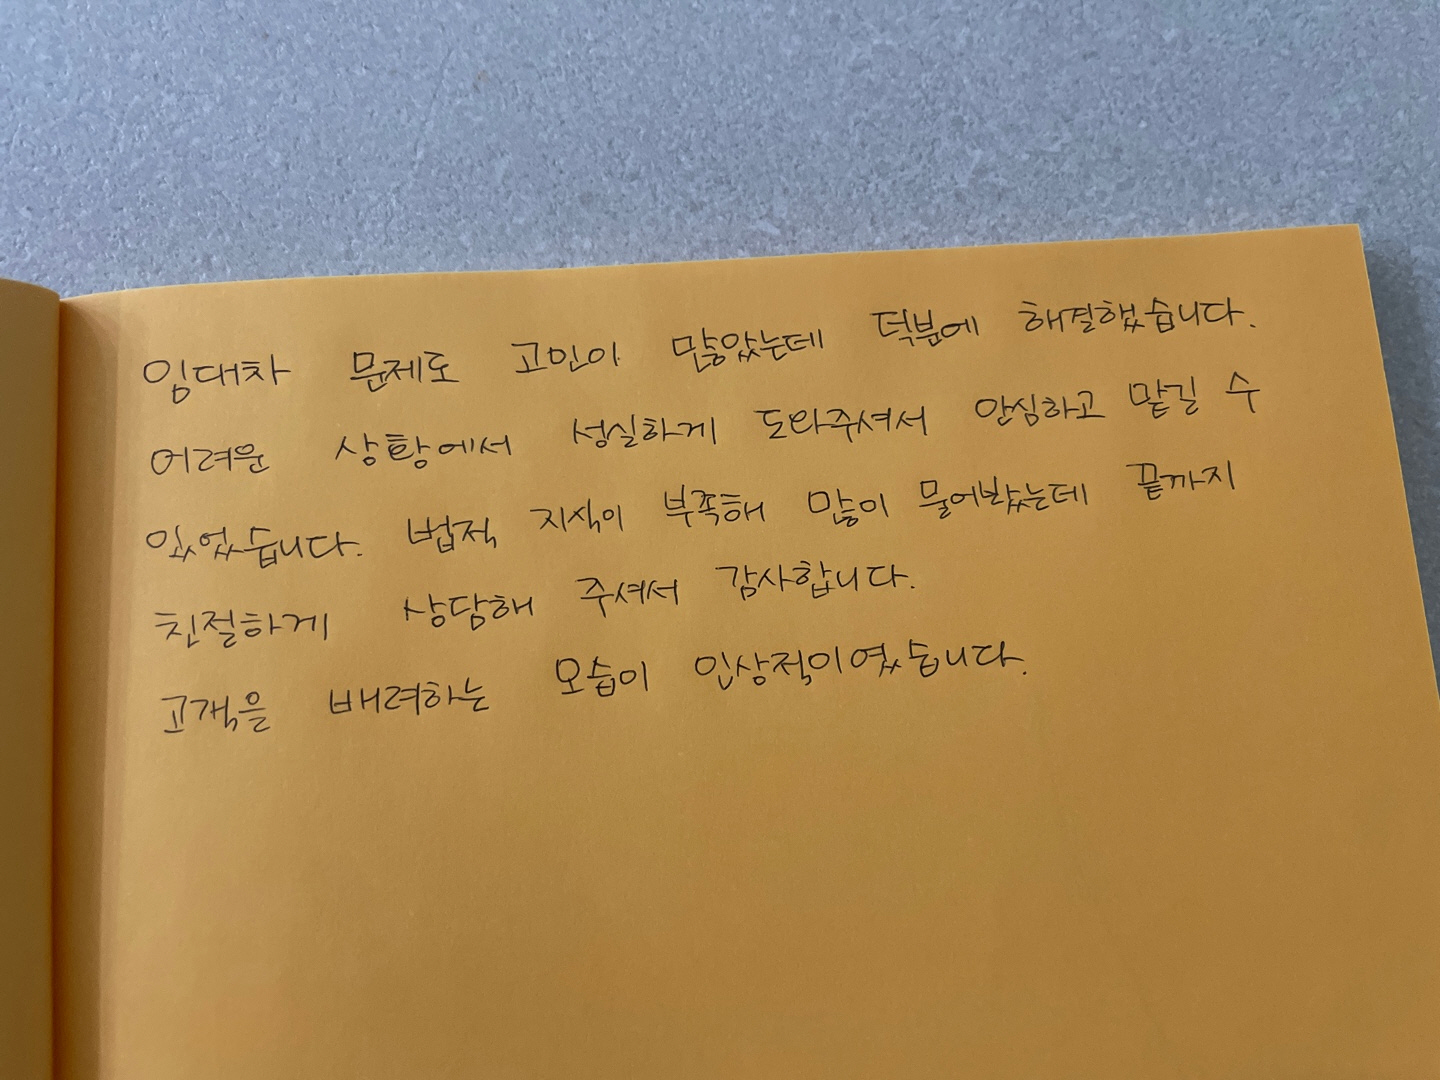 임대차 문제도 고민이 많았는데 덕분에 해결했습니다.
어려운 상황에서 성실하게 도와주셔서 안심하고 맡길 수
있었습니다. 법적 지식이 부족해 많이 물어봤는데 끝까지
친절하게 상담해 주셔서 감사합니다.
고객을 배려하는 모습이 인상적이였습니다.